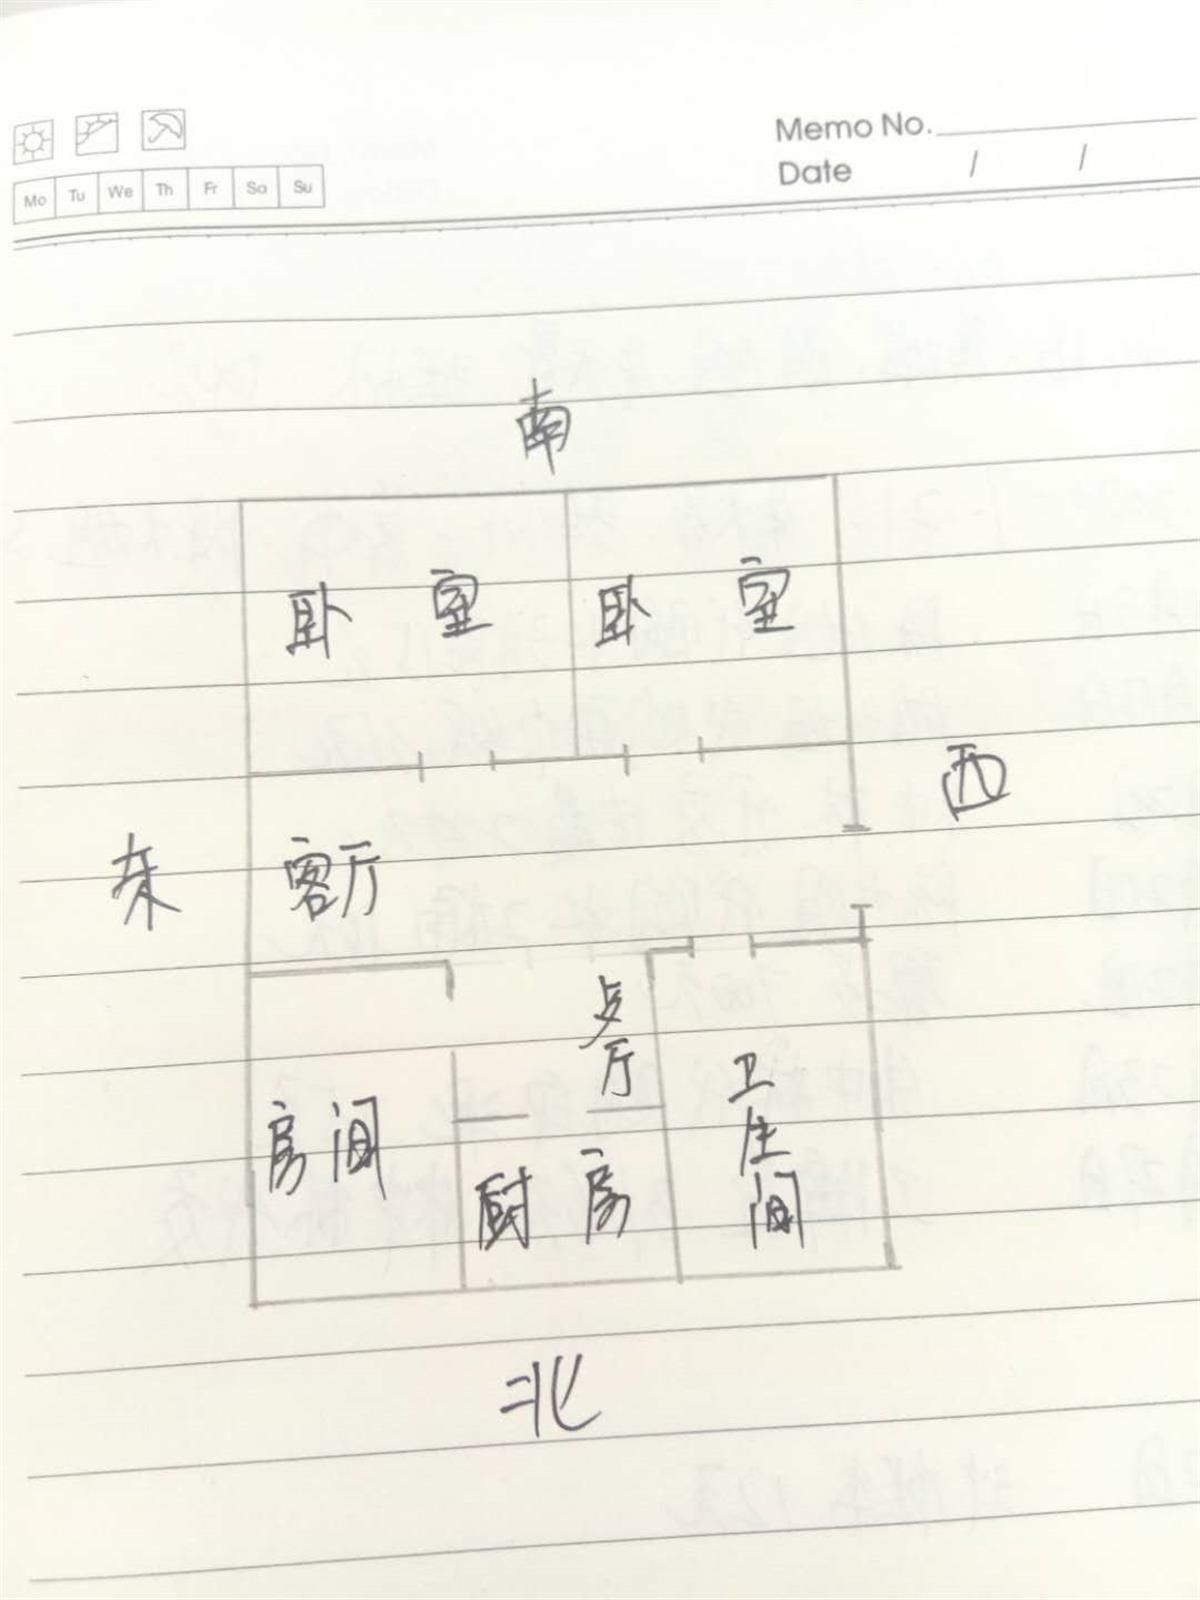 Memo No.
Mo Tu We Th Fr Sa Su
Date / /
南
卧室 卧室
西
东 客厅
歺厅
卫生间
房间
厨房
北